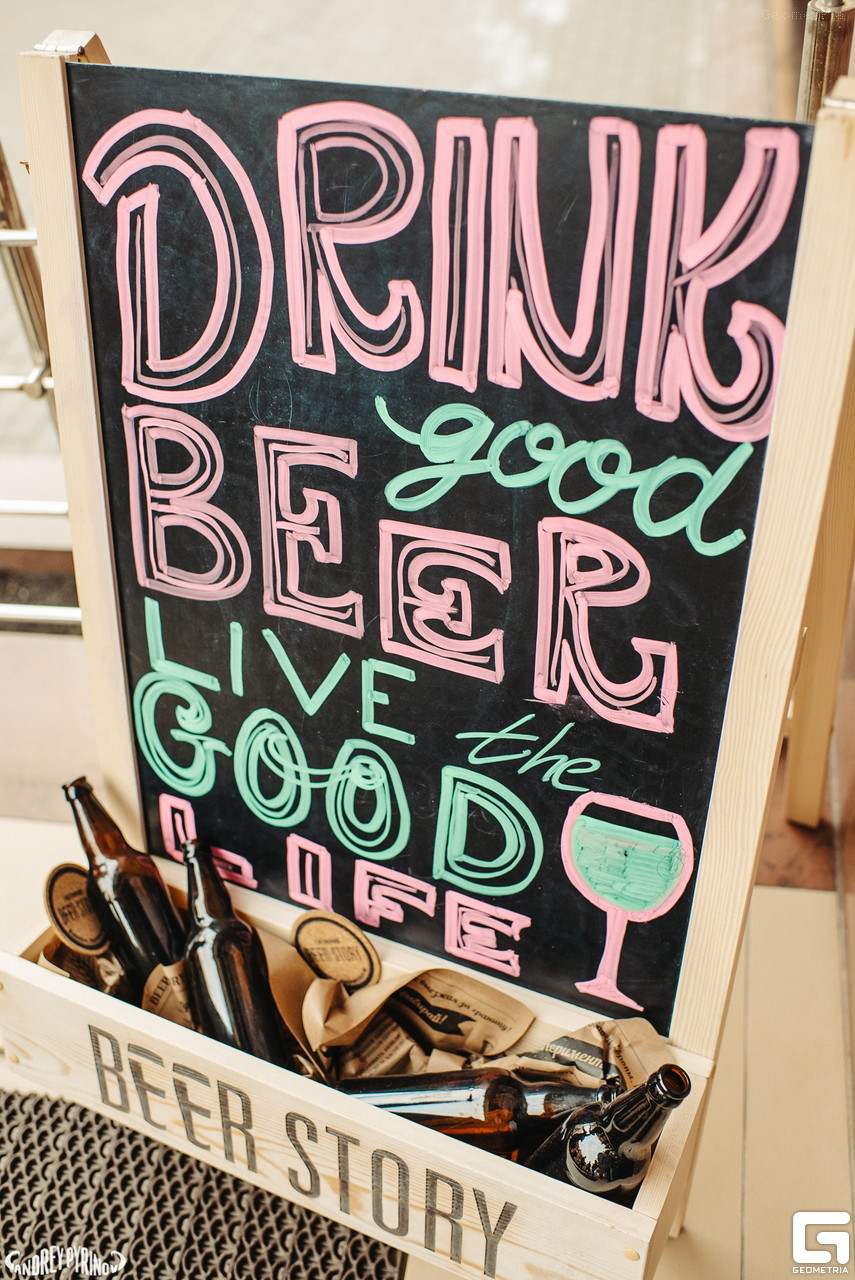 DRINK
good
BEER
LIVE
the
GOOD
LIFE
BEER STORY
BEER STORY
BEER STORY
ANDREY PYRINOV
GEOMETRIA